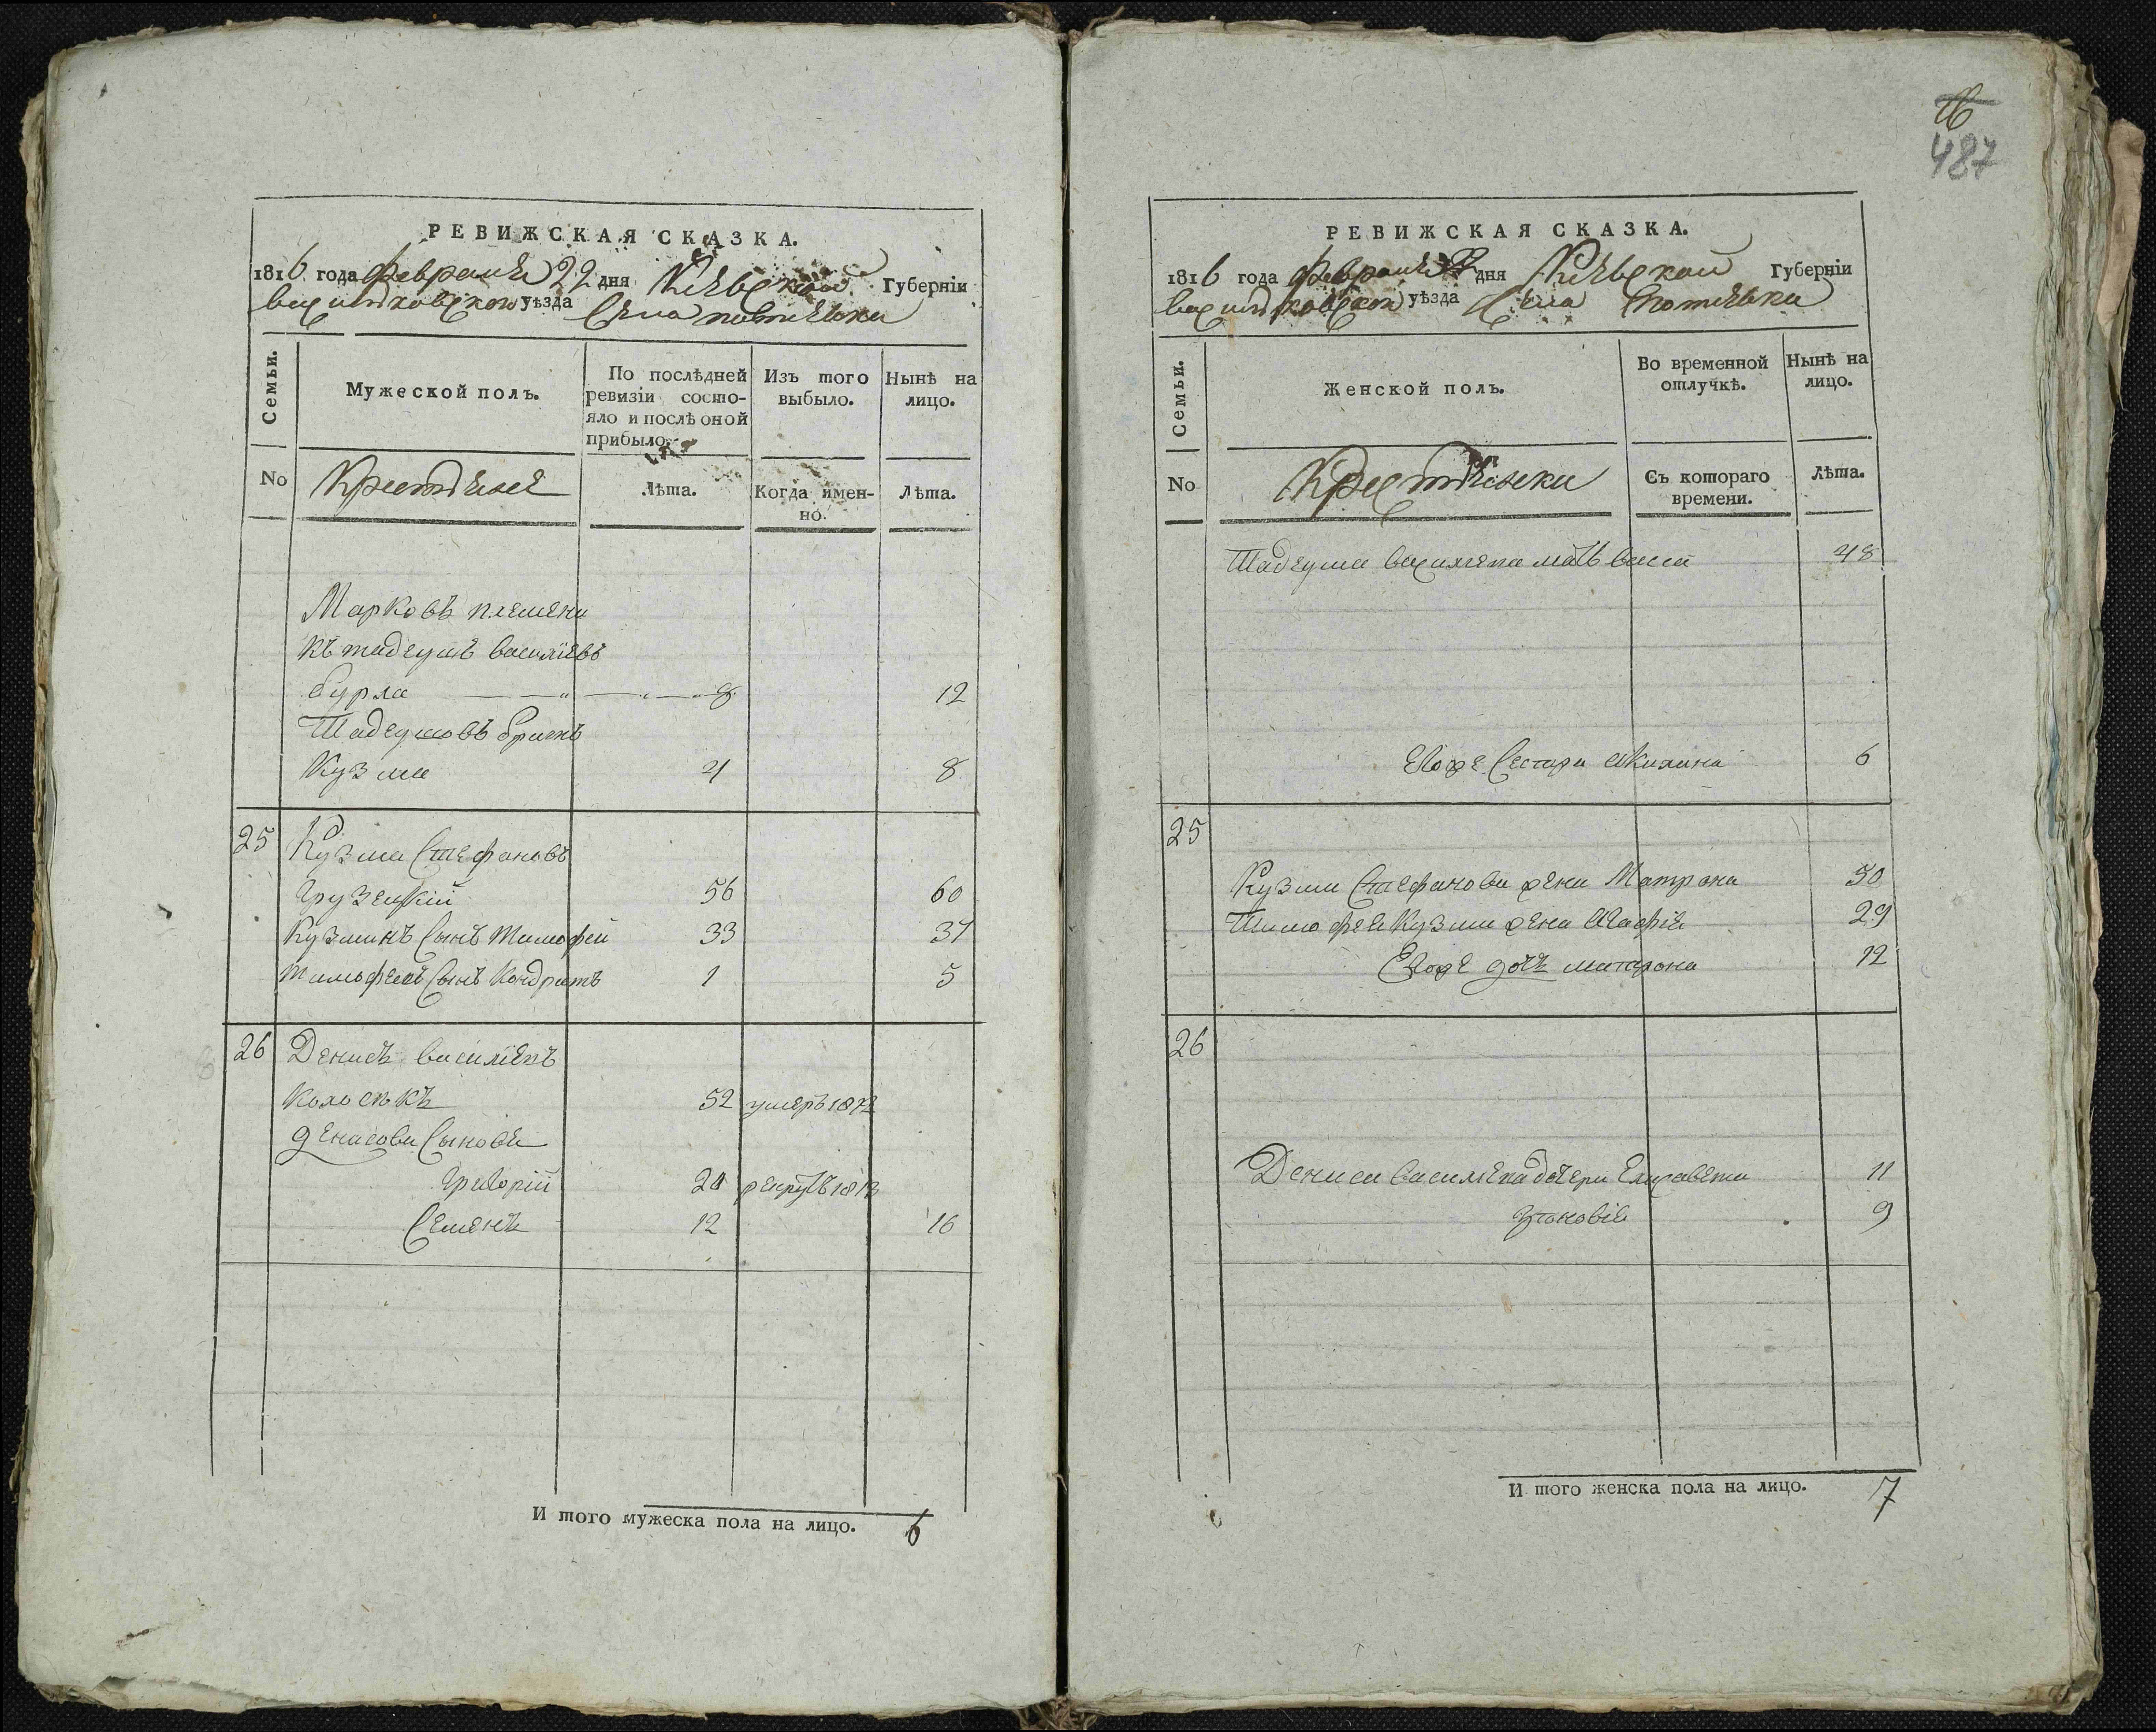 РЕВИЖСКАЯ СКАЗКА.
1816 года февраля 22 дня Кіевской Губерніи
васильковскои уѣзда Села потіевки
Семьи.
Мужеской полъ.
По послѣдней ревизіи состо-
яло и послѣ оной
прибыло.
Изъ того
выбыло.
Нынѣ на
лицо.
No
Крестяне
Лѣта.
Когда имен-
но.
Лѣта.
Марковъ племени
къ тадеушъ василіевъ
бурла 8 12
Тадеушовъ братъ
Кузма 4 8
25 Кузма Стефановъ
Грузенкій 56 60
Кузминъ Сынъ Тимофей 33 37
Тимофеевъ Сынъ Кондратъ 1 5
26 Денисъ василіевъ
52 умеръ 1812
денисови Сыновя
Григорій 20 рекрутъ 1812
Семенъ 12 16
И того мужеска пола на лицо. 6
16
487
РЕВИЖСКАЯ СКАЗКА.
1816 года февраля 22 дня Кіевской Губерніи
васильковскои уѣзда Села Потіевки
Семьи.
Женской полъ.
Во временной
отлучкѣ.
Нынѣ на
лицо.
No
Крестянки
Съ котораго
времени.
Лѣта.
Тадеуша василіева мать васса 48
Егоже Сестра Акилина 6
25
Кузми Стефанова жена Матрона 50
Тимофея Кузми жена Агафія 29
Егоже дочь матрона 12
26
Дениса василіева дочери Елисавета 11
Зѣновія 9
И того женска пола на лицо. 7